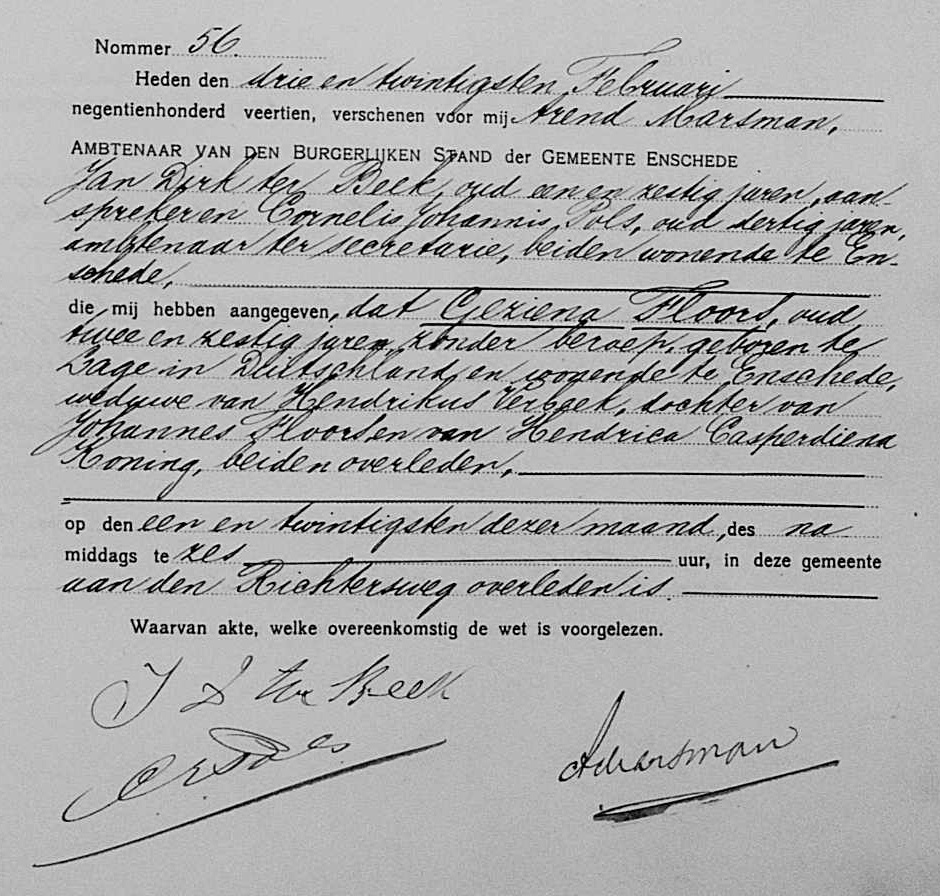 Nommer 56.
Heden den drie en twintigsten Februarij
negentienhonderd veertien, verschenen voor mij Arend Marsman,
AMBTENAAR VAN DEN BURGERLIJKEN STAND der GEMEENTE ENSCHEDE
Jan Dirk ter Beek, oud een en zestig jaren, aan-
spreker en Cornelis Johannis Pols, oud dertig jaren,
ambtenaar ter secretarie, beiden wonende te En-
schede,
die mij hebben aangegeven, dat Geziena Floors, oud
twee en zestig jaren, zonder beroep, geboren te
Lage in Duitschland en wonende te Enschede,
weduwe van Hendrikus Verbeek, dochter van
Johannes Floors en van Hendrica Casperdiena
Koning, beiden overleden,
op den een en twintigsten dezer maand, des na
middags te zes uur, in deze gemeente
aan den Richtersweg overleden is.
Waarvan akte, welke overeenkomstig de wet is voorgelezen.
J D ter Beek
CJ Pols
AMarsman